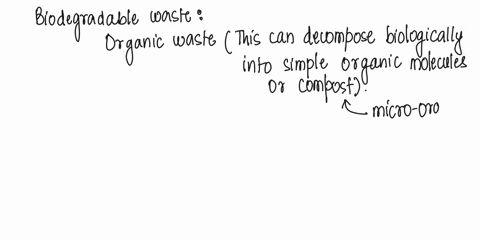 Biodegradable waste:
Organic waste (This can decompose biologically
into simple organic molecules
or compost).
micro-oro